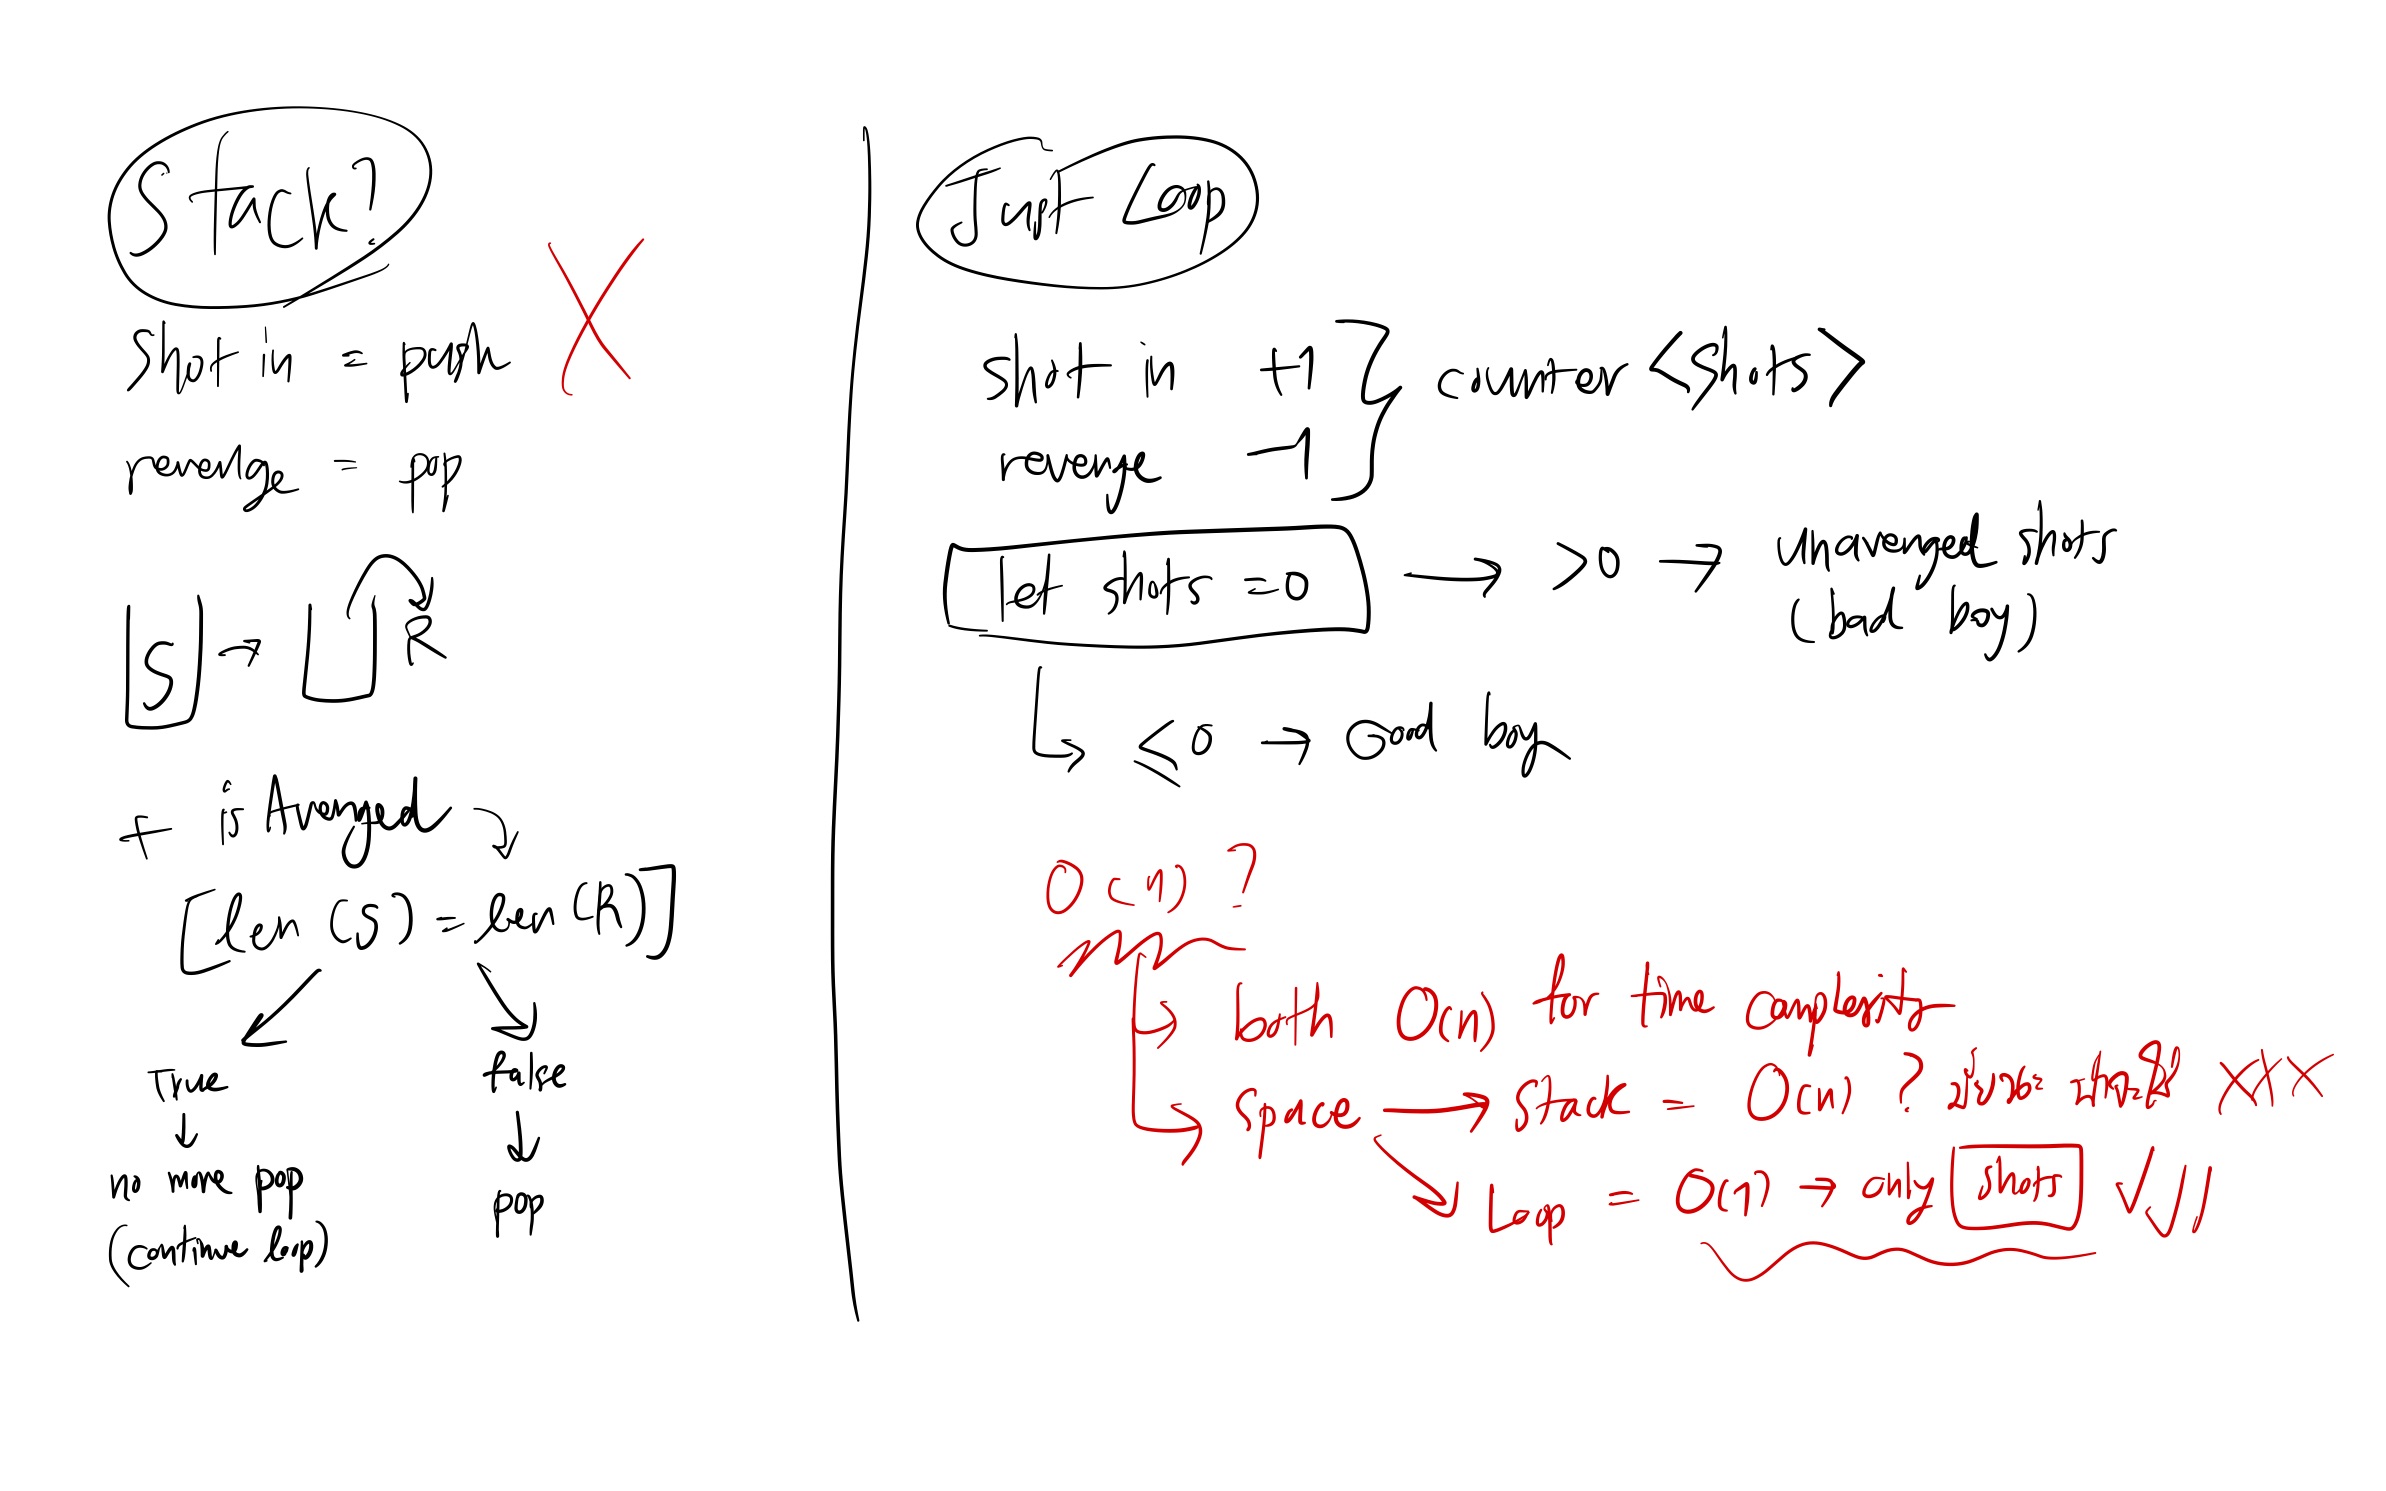 Stack?
Shot in = push
revenge = pop
S → R
+ is Avenged
[len (S) = len (R)]
True
false
no more pop
pop
(continue loop)
Just Loop
shot in +1
revenge -1
counter <shots>
let shots = 0 → >0 → unavenged shots
(bad boy)
≤0 → Good boy
O(1) ?
both O(n) for time complexity
space → stack = O(n) ? XXX
Loop = O(1) → only shots ✓✓✓